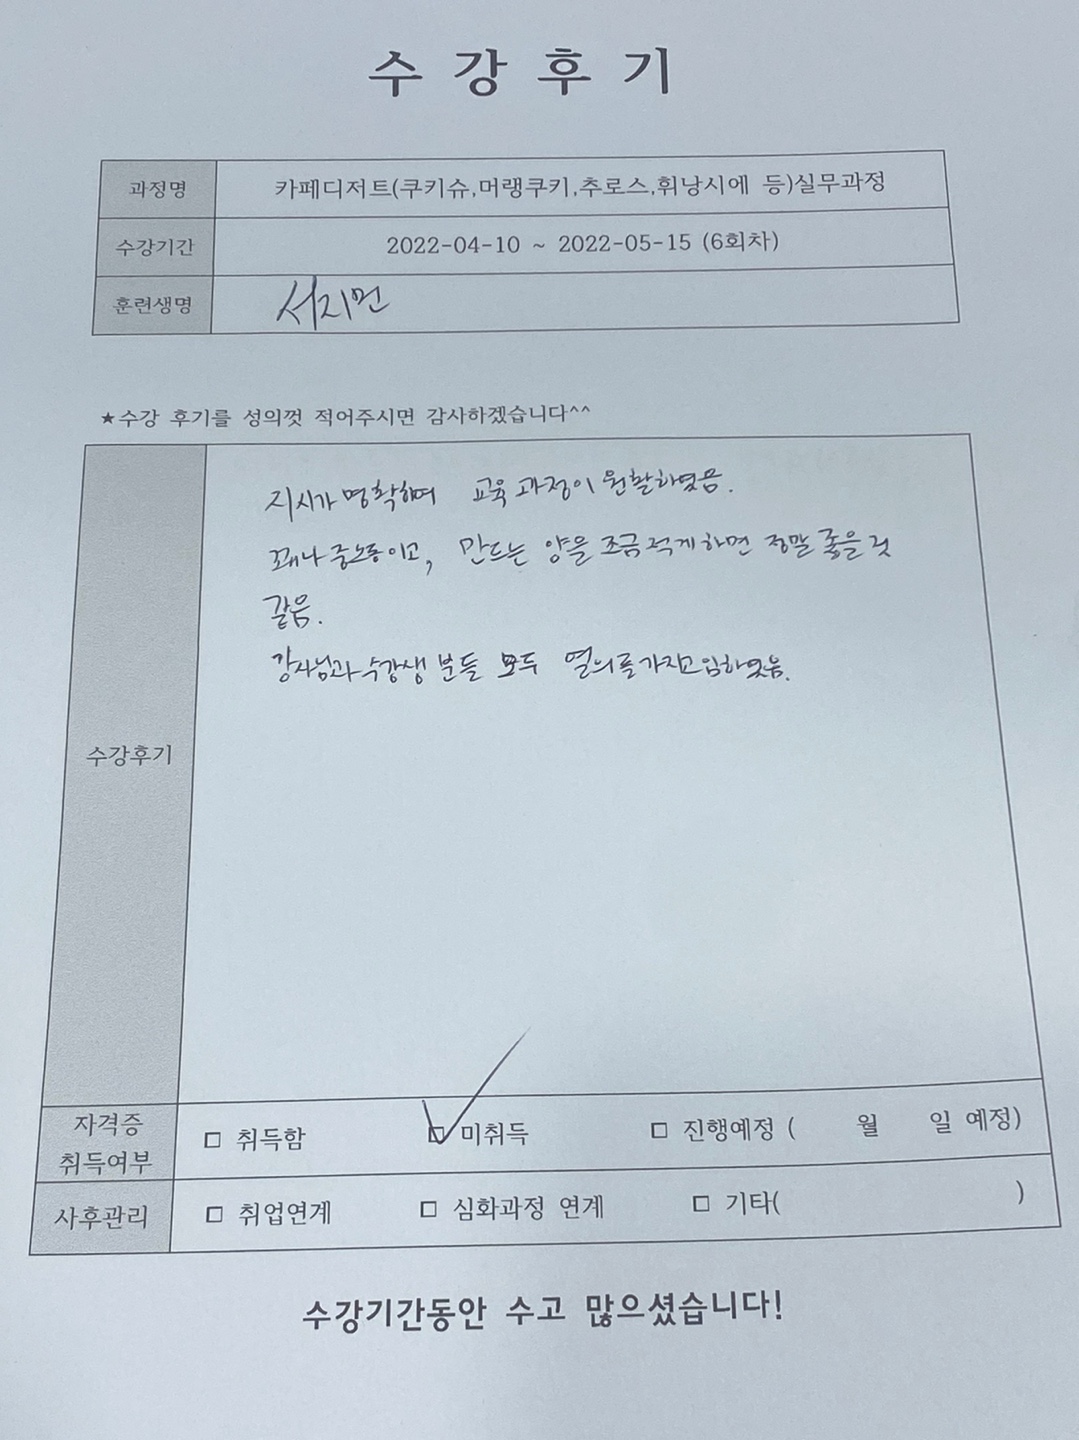 수 강 후 기
과정명 카페디저트(쿠키슈,머랭쿠키,추로스,휘낭시에 등)실무과정
수강기간 2022-04-10 ~ 2022-05-15 (6회차)
훈련생명 서지먼
★수강 후기를 성의껏 적어주시면 감사하겠습니다^^
지시가 명확하며 교육 과정이 원활하였음.
꽤나 중노동이고, 만드는 양을 조금 적게 하면 정말 좋을 것
같음.
강사님과 수강생 분들 모두 열의를 가지고 임하였음.
수강후기
자격증
취득여부
□ 취득함 □ 미취득 □ 진행예정 ( 월 일 예정)
사후관리 □ 취업연계 □ 심화과정 연계 □ 기타( )
수강기간동안 수고 많으셨습니다!